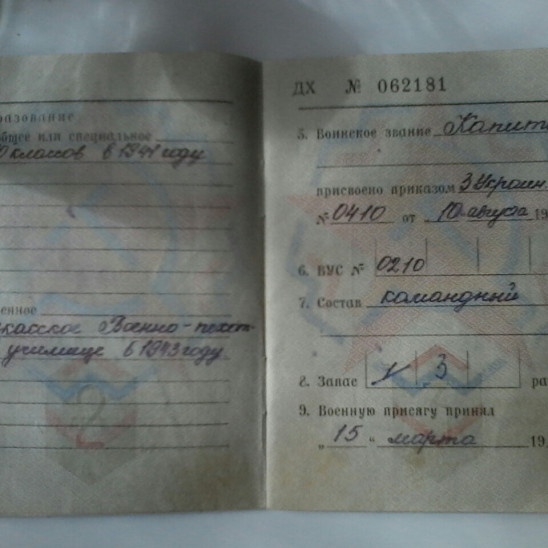 разование
общее или специальное
0 классов в 1941 году
енное
касское Военно-пехот
училище в 1943 году
ДХ № 062181
5. Воинское звание Капит
присвоено приказом 3 Украин.
№ 0410 от „10 августа 19
6. ВУС № 0210
7. Состав командный
8. Запас 1 3 ра
9. Военную присягу принял
„15“ марта 19